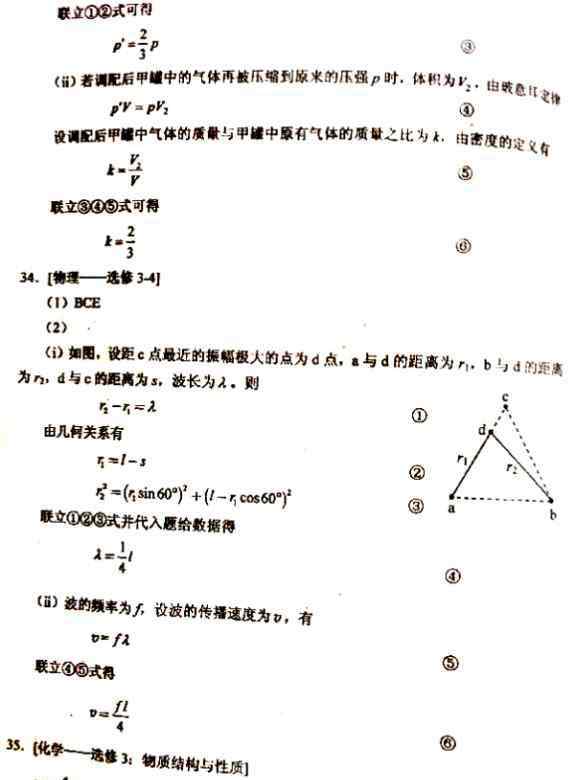 联立①②式可得
ρ'=2/3 ρ ③
(ii)若调配后甲罐中的气体再被压缩到原来的压强p时,体积为V₂,由玻意耳定律
p'V=pV₂ ④
设调配后甲罐中气体的质量与甲罐中原有气体的质量之比为k,由密度的定义有
k=V₂/V ⑤
联立③④⑤式可得
k=2/3 ⑥
34.[物理——选修3-4]
(1)BCE
(2)
(i)如图,设距c点最近的振幅极大的点为d点,a与d的距离为r₁,b与d的距离
为r₂,d与c的距离为s,波长为λ。则
r₂-r₁=λ ①
由几何关系有
r₁=l-s ②
r₂²=(r₁sin60°)²+(l-r₁cos60°)² ③
联立①②③式并代入题给数据得
λ=1/4 l ④
c
d
r₁
r₂
a
b
(ii)波的频率为f,设波的传播速度为υ,有
υ=fλ ⑤
联立④⑤式得
υ=fl/4 ⑥
35.[化学——选修3:物质结构与性质]